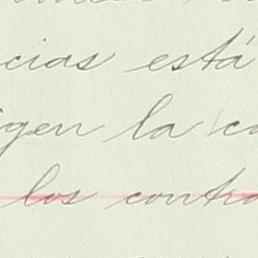 cias está
igen la co
los contra